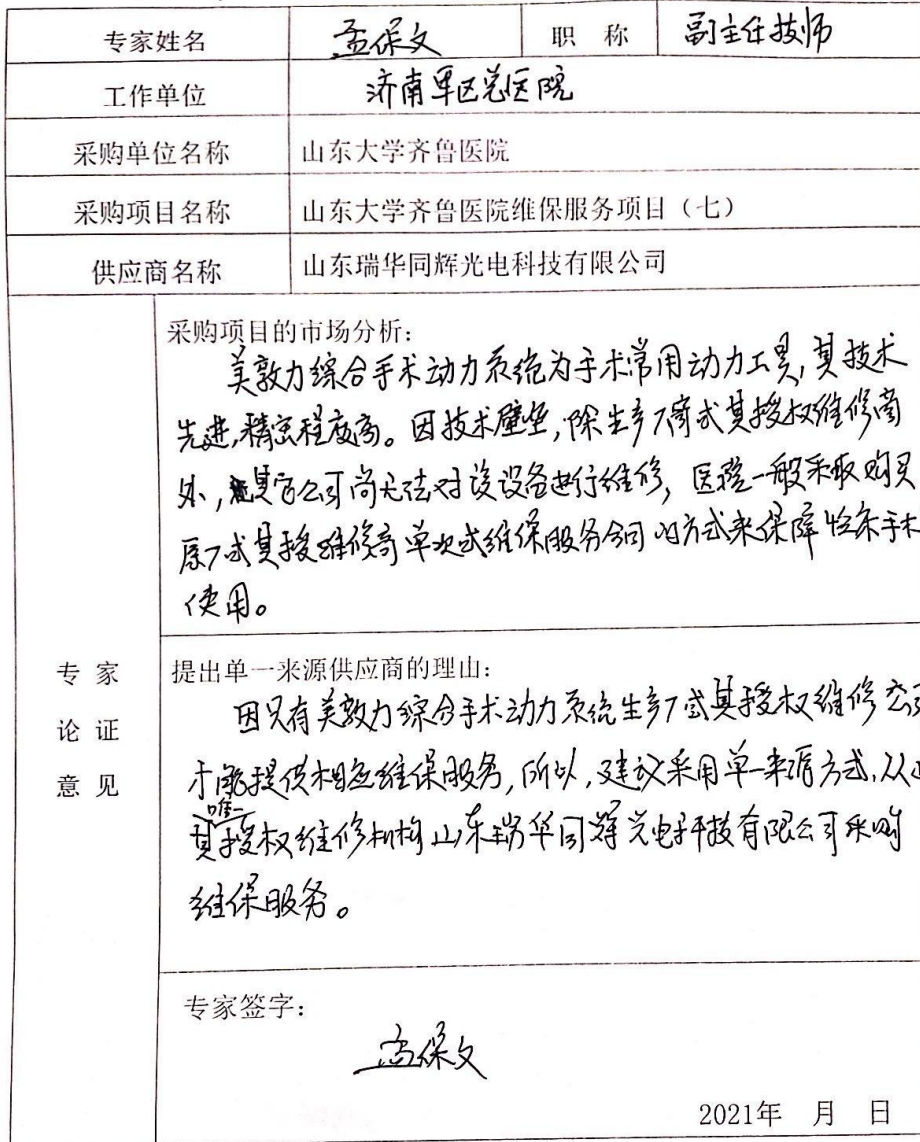 专家姓名 孟保文 职 称 副主任技师
工作单位 济南军区总医院
采购单位名称 山东大学齐鲁医院
采购项目名称 山东大学齐鲁医院维保服务项目（七）
供应商名称 山东瑞华同辉光电科技有限公司
专 家
论 证
意 见
采购项目的市场分析：
美敦力综合手术动力系统为手术常用动力工具，其技术
先进，精密程度高。因技术壁垒，除生产厂商或其授权维修商
外，其它公司尚无法对该设备进行维修，医院一般采取购买
原厂或其授维修商单次或维保服务合同的方式来保障临床手术
使用。
提出单一来源供应商的理由：
因只有美敦力综合手术动力系统生产厂或其授权维修
才能提供相应维保服务，所以，建议采用单一来源方式，从
唯一
其授权维修机构山东瑞华同辉光电科技有限公司采购
维保服务。
专家签字：
孟保文
2021年 月 日